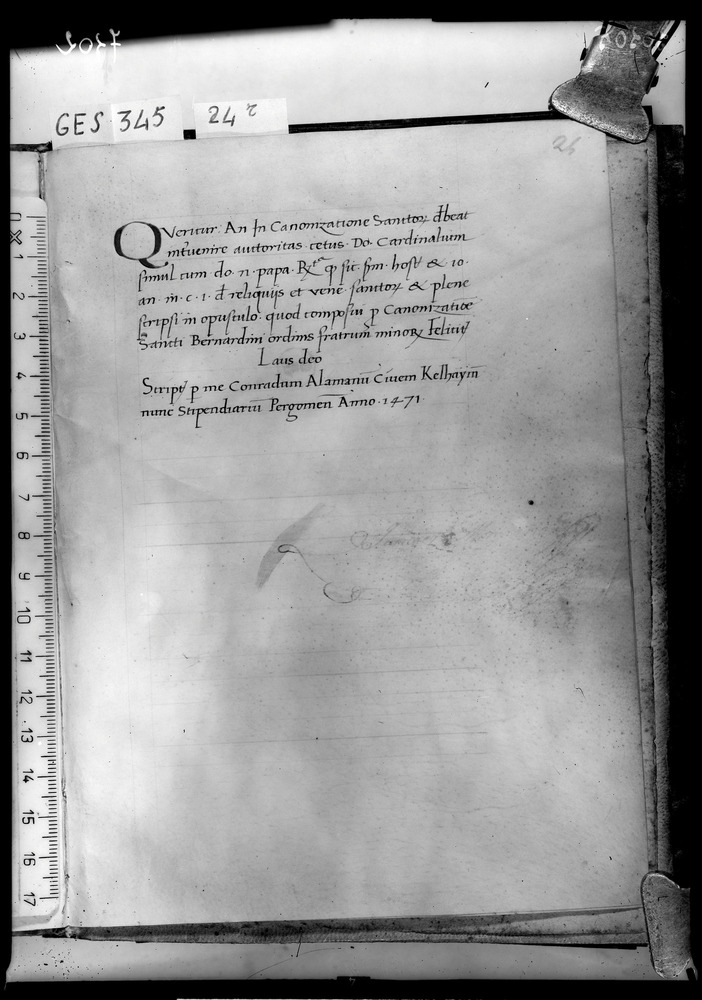 7302
GES 345 24r
24
Queritur. An In Canonizatione Sanctoꝝ đbeat
intuenire auctoritas cetus. Do. Cardinalium
simul cum do. n. papa. ꝙ sic. host & 10.
an. in. c. 1. đ reliquijs et vene. sanctoꝝ & plene
scripsi in opusculo. quod composui ꝑ Canonizatiõe
Sancti Bernardini ordinis fratrum minoꝝ Felicit
Laus deo
Script ꝑ me Conradum Alamanũ Ciuem Kelhayin
nunc Stipendiariũ Pergomen Anno. 1471.
1
2
3
4
5
6
7
8
9
10
11
12
13
14
15
16
17